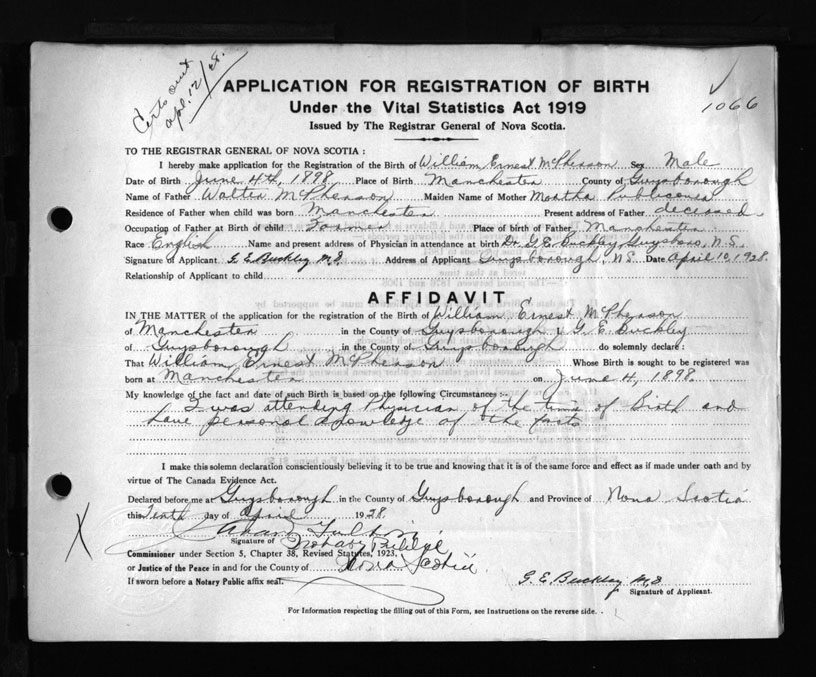 Certs sent
apl. 12/28.
1066
APPLICATION FOR REGISTRATION OF BIRTH
Under the Vital Statistics Act 1919
Issued by The Registrar General of Nova Scotia.
TO THE REGISTRAR GENERAL OF NOVA SCOTIA :
I hereby make application for the Registration of the Birth of William Ernest McPherson Sex Male
Date of Birth June 4th, 1898 Place of Birth Manchester County of Guysborough
Name of Father Walter McPherson Maiden Name of Mother Martha
Residence of Father when child was born Manchester Present address of Father deceased
Occupation of Father at Birth of child Farmer Place of birth of Father Manchester
Race English Name and present address of Physician in attendance at birth Dr. G.E. Buckley Guysboro, N.S.
Signature of Applicant G E Buckley M.D. Address of Applicant Guysborough, N.S. Date April 10, 1928.
Relationship of Applicant to child
AFFIDAVIT
IN THE MATTER of the application for the registration of the Birth of William Ernest McPherson
of Manchester in the County of Guysborough I, G. E. Buckley
of Guysborough in the County of Guysborough do solemnly declare :
That William Ernest McPherson Whose Birth is sought to be registered was
born at Manchester on June 4, 1898.
My knowledge of the fact and date of such Birth is based on the following Circumstances :-
I was attending Physician at the time of Birth and
have personal knowledge of the facts
I make this solemn declaration conscientiously believing it to be true and knowing that it is of the same force and effect as if made under oath and by
virtue of The Canada Evidence Act.
Declared before me at Guysborough in the County of Guysborough and Province of Nova Scotia
this Tenth day of April 1928.
Signature of
Notary Public
Commissioner under Section 5, Chapter 38, Revised Statutes, 1923,
or Justice of the Peace in and for the County of Nova Scotia.
If sworn before a Notary Public affix seal.
G. E. Buckley M.D.
Signature of Applicant.
For Information respecting the filling out of this Form, see Instructions on the reverse side.